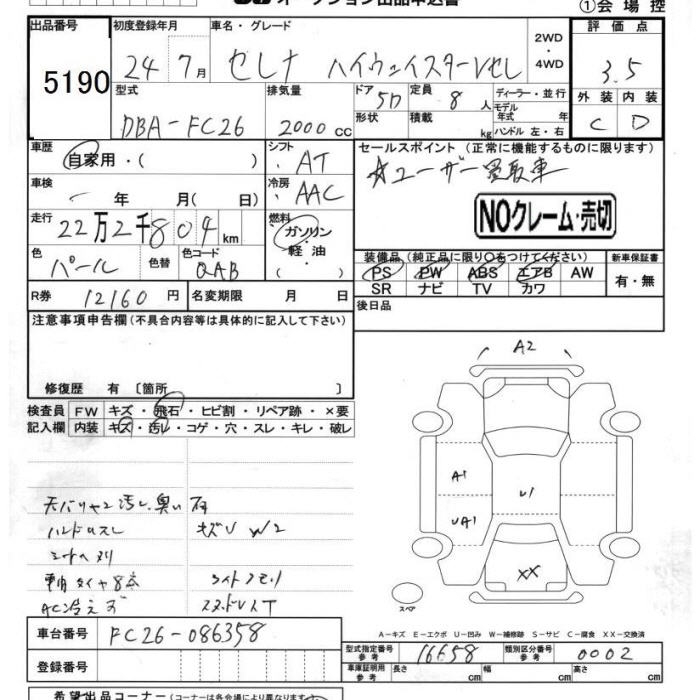 オークション出品申込書
①会場控
出品番号 初度登録年月 車名・グレード 2WD・4WD 評価点
5190 24 7月 セレナ ハイウェイスターVセレ 3.5
型式 排気量 ドア 5D 定員 8人 ディーラー・並行 外装 内装
DBA-FC26 2000cc 形状 積載 kg モデル年式 年 ハンドル 左・右 C D
車歴 自家用・( ) シフト AT セールスポイント (正常に機能するものに限ります)
☆ユーザー買取車
車検 年 月 ( 日) 冷房 AAC
NOクレーム・売切
走行 22万2千804km 燃料 ガソリン・軽油・( )
色 パール 色替 色コード QAB
装備品 (純正品に限り○をつけてください) 新車保証書
PS PW ABS エアB AW 有・無
SR ナビ TV カワ
R券 12160円 名変期限 月 日
後日品
注意事項申告欄(不具合内容等は具体的に記入して下さい)
修復歴 有 〔箇所 〕
検査員 FW キズ・飛石・ヒビ割・リペア跡・×要
記入欄 内装 キズ・汚レ・コゲ・穴・スレ・キレ・破レ
A2
A1
UA1
U1
XX
スペア
キズU W2
AC冷えず
A-キズ E-エクボ U-凹み W-補修跡 S-サビ C-腐食 XX-交換済
車台番号 FC26-086358
型式指定番号 参考 16658 類別区分番号 参考 0002
登録番号
車庫証明用 参考 長さ cm 幅 cm 高さ cm
希望出品コーナー(コーナーは各会場により異なります)